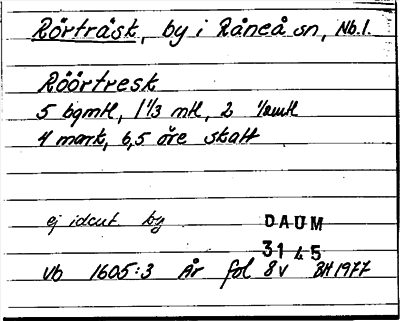 Rörträsk, by i Råneå sn, Nb.l.
Röörtresk
5 bgmtl, 1 1/3 mtl, 2
4 mark, 6,5 öre skatt
ej ident. by
DAUM
31 45
Vb 1605:3 År fol 8v BH 1977